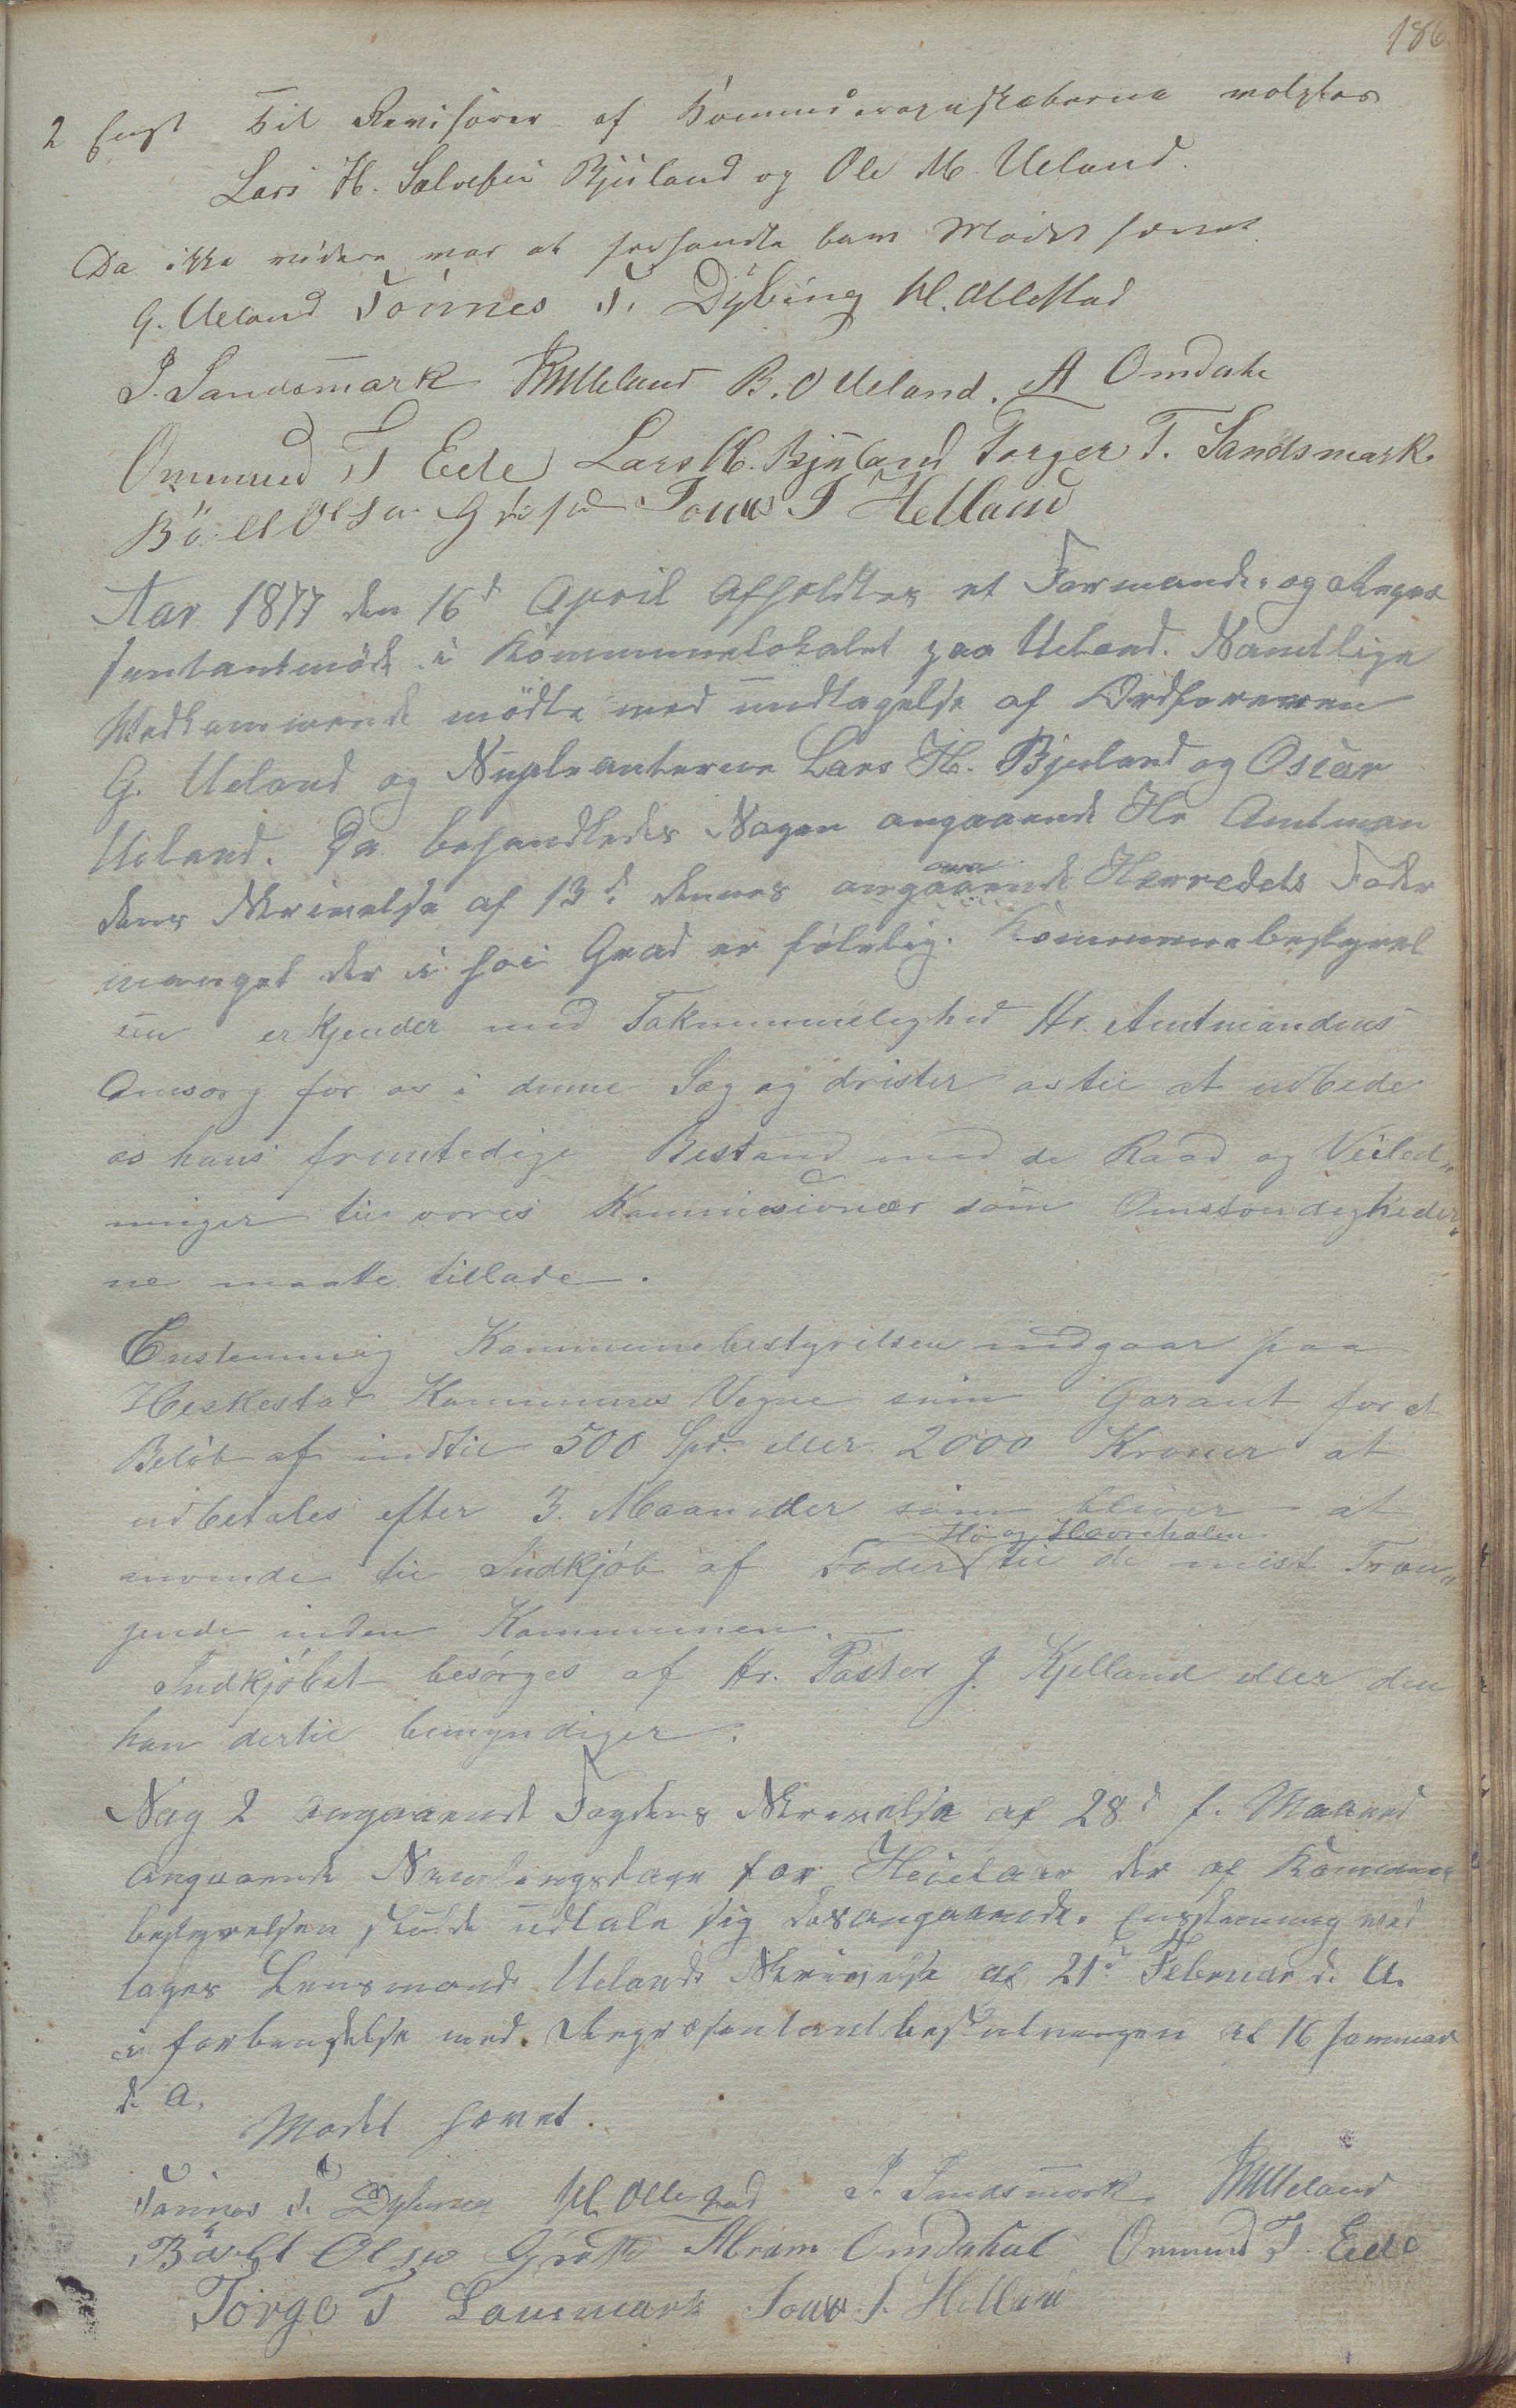 186.
2 Til Revisorer af Kommuneregnskaberne valgtes
Lars H. Bjuland og Ole M. Ueland.
Da ikke videre var at forhandle blev Mødet hævet.
G. Ueland Tönnes T. Dybing M. Ollestad
J. Sandsmark Ueland B. O Ueland. A Omdahl
Ommund T Eede Lars H. Bjuland Torger T. Sandsmark.
Olsen Tonnes T Helland
Aar 1877 den 16d April afholdtes et Formands og Repræ
sentantmöde i Kommunelokalet paa Ueland. Samtlige
Vedkommende mödte med undtagelse af Ordføreren
G. Ueland og Supleanterne Lars H. Bjuland og Oscar
Ueland. Da behandledes Sagen angaaende Hr Amtman
dens Skrivelse af 13d dennes angaaende Herredets Foder
mangel der i høi Grad er følelig. Kommunebestyrel
sen erkjender med Taknemmelighed Hr. Amtmandens
Omsorg for os i denne Sag og drister os til at udbede
os hans fremtidige Bestand med de Raad og Veiled„
ninger til vores Kommissionær som Omstændigheder„
ne maatte tillade.
Enstemmig Kommunebestyrelsen indgaar paa
Heskestad Kommunes Vegne som Garant for et
Beløb af indtil 500 Spd. eller 2000 Kroner at
udbetales efter 3. Maaneder som bliver at
Hø og Havrehalm
anvende til Indkjøb af Foder til de mest Træn„
gende inden Kommunen. —
Indkjøbet besørges af Hr. Pastor J. Kjelland eller den
han dertil bemyndiger.
Sag 2 angaaende Fogdens Skrivelse af 28d f. Maaned
angaaende Samlingsdage for Heielaar der af Kommune
bestyrelsen skulde udtale sig desangaaende. Enstemmig ved
tages Lensmand Uelands Skrivelse af 21d Februar d. A.
i forbindelse med Repræsentantbeslutningen af 16 Januar
d. A.
Mødet hævet.
Tönnes T. Dybing M. Ollestad J. Sandsmark Ueland
Olsen Abram Omdahl Ommund T. Eede
Torge T Sansmark Tonnes T. Helland